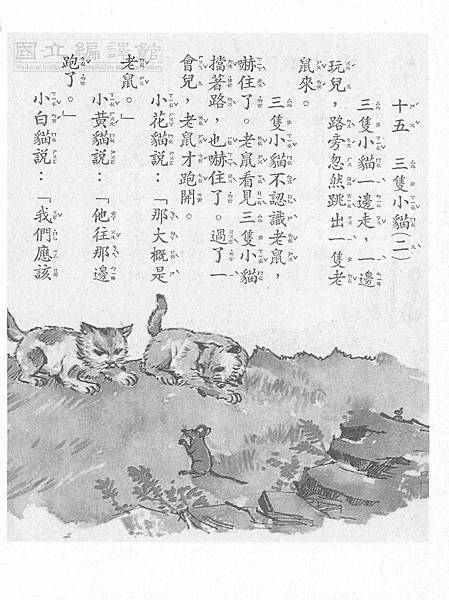 國立編譯館
十五 三隻小貓(二)
三隻小貓一邊走，一邊
玩兒，路旁忽然跳出一隻老
鼠來。
三隻小貓不認識老鼠，
嚇住了。老鼠看見三隻小貓
擋著路，也嚇住了。過了一
會兒，老鼠才跑開。
小花貓說：「那大概是
老鼠。」
小黃貓說：「他往那邊
跑了。」
小白貓說：「我們應該